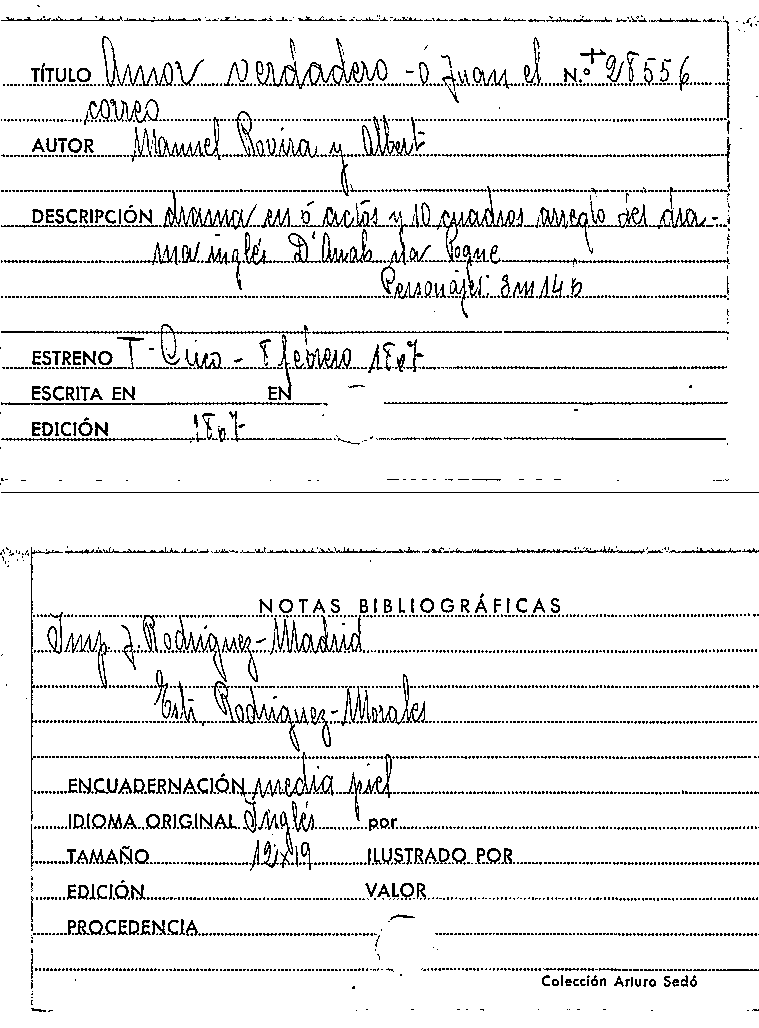 TÍTULO Amor verdadero - ó Juan el N.º + 28556
correo
AUTOR Manuel Rovira y Albert
DESCRIPCIÓN drama en 6 actos y 10 cuadros arreglo del dra-
ma inglés D'Anah la Pogue
Personajes: 3 m 14 h
ESTRENO T. Circo - 8 febrero 1867
ESCRITA EN EN
EDICIÓN 1867
NOTAS BIBLIOGRÁFICAS
Imp. J. Rodríguez - Madrid
Edit. Rodríguez - Morales
ENCUADERNACIÓN media piel
IDIOMA ORIGINAL Inglés por
TAMAÑO 12x19 ILUSTRADO POR
EDICIÓN VALOR
PROCEDENCIA
Colección Arturo Sedó